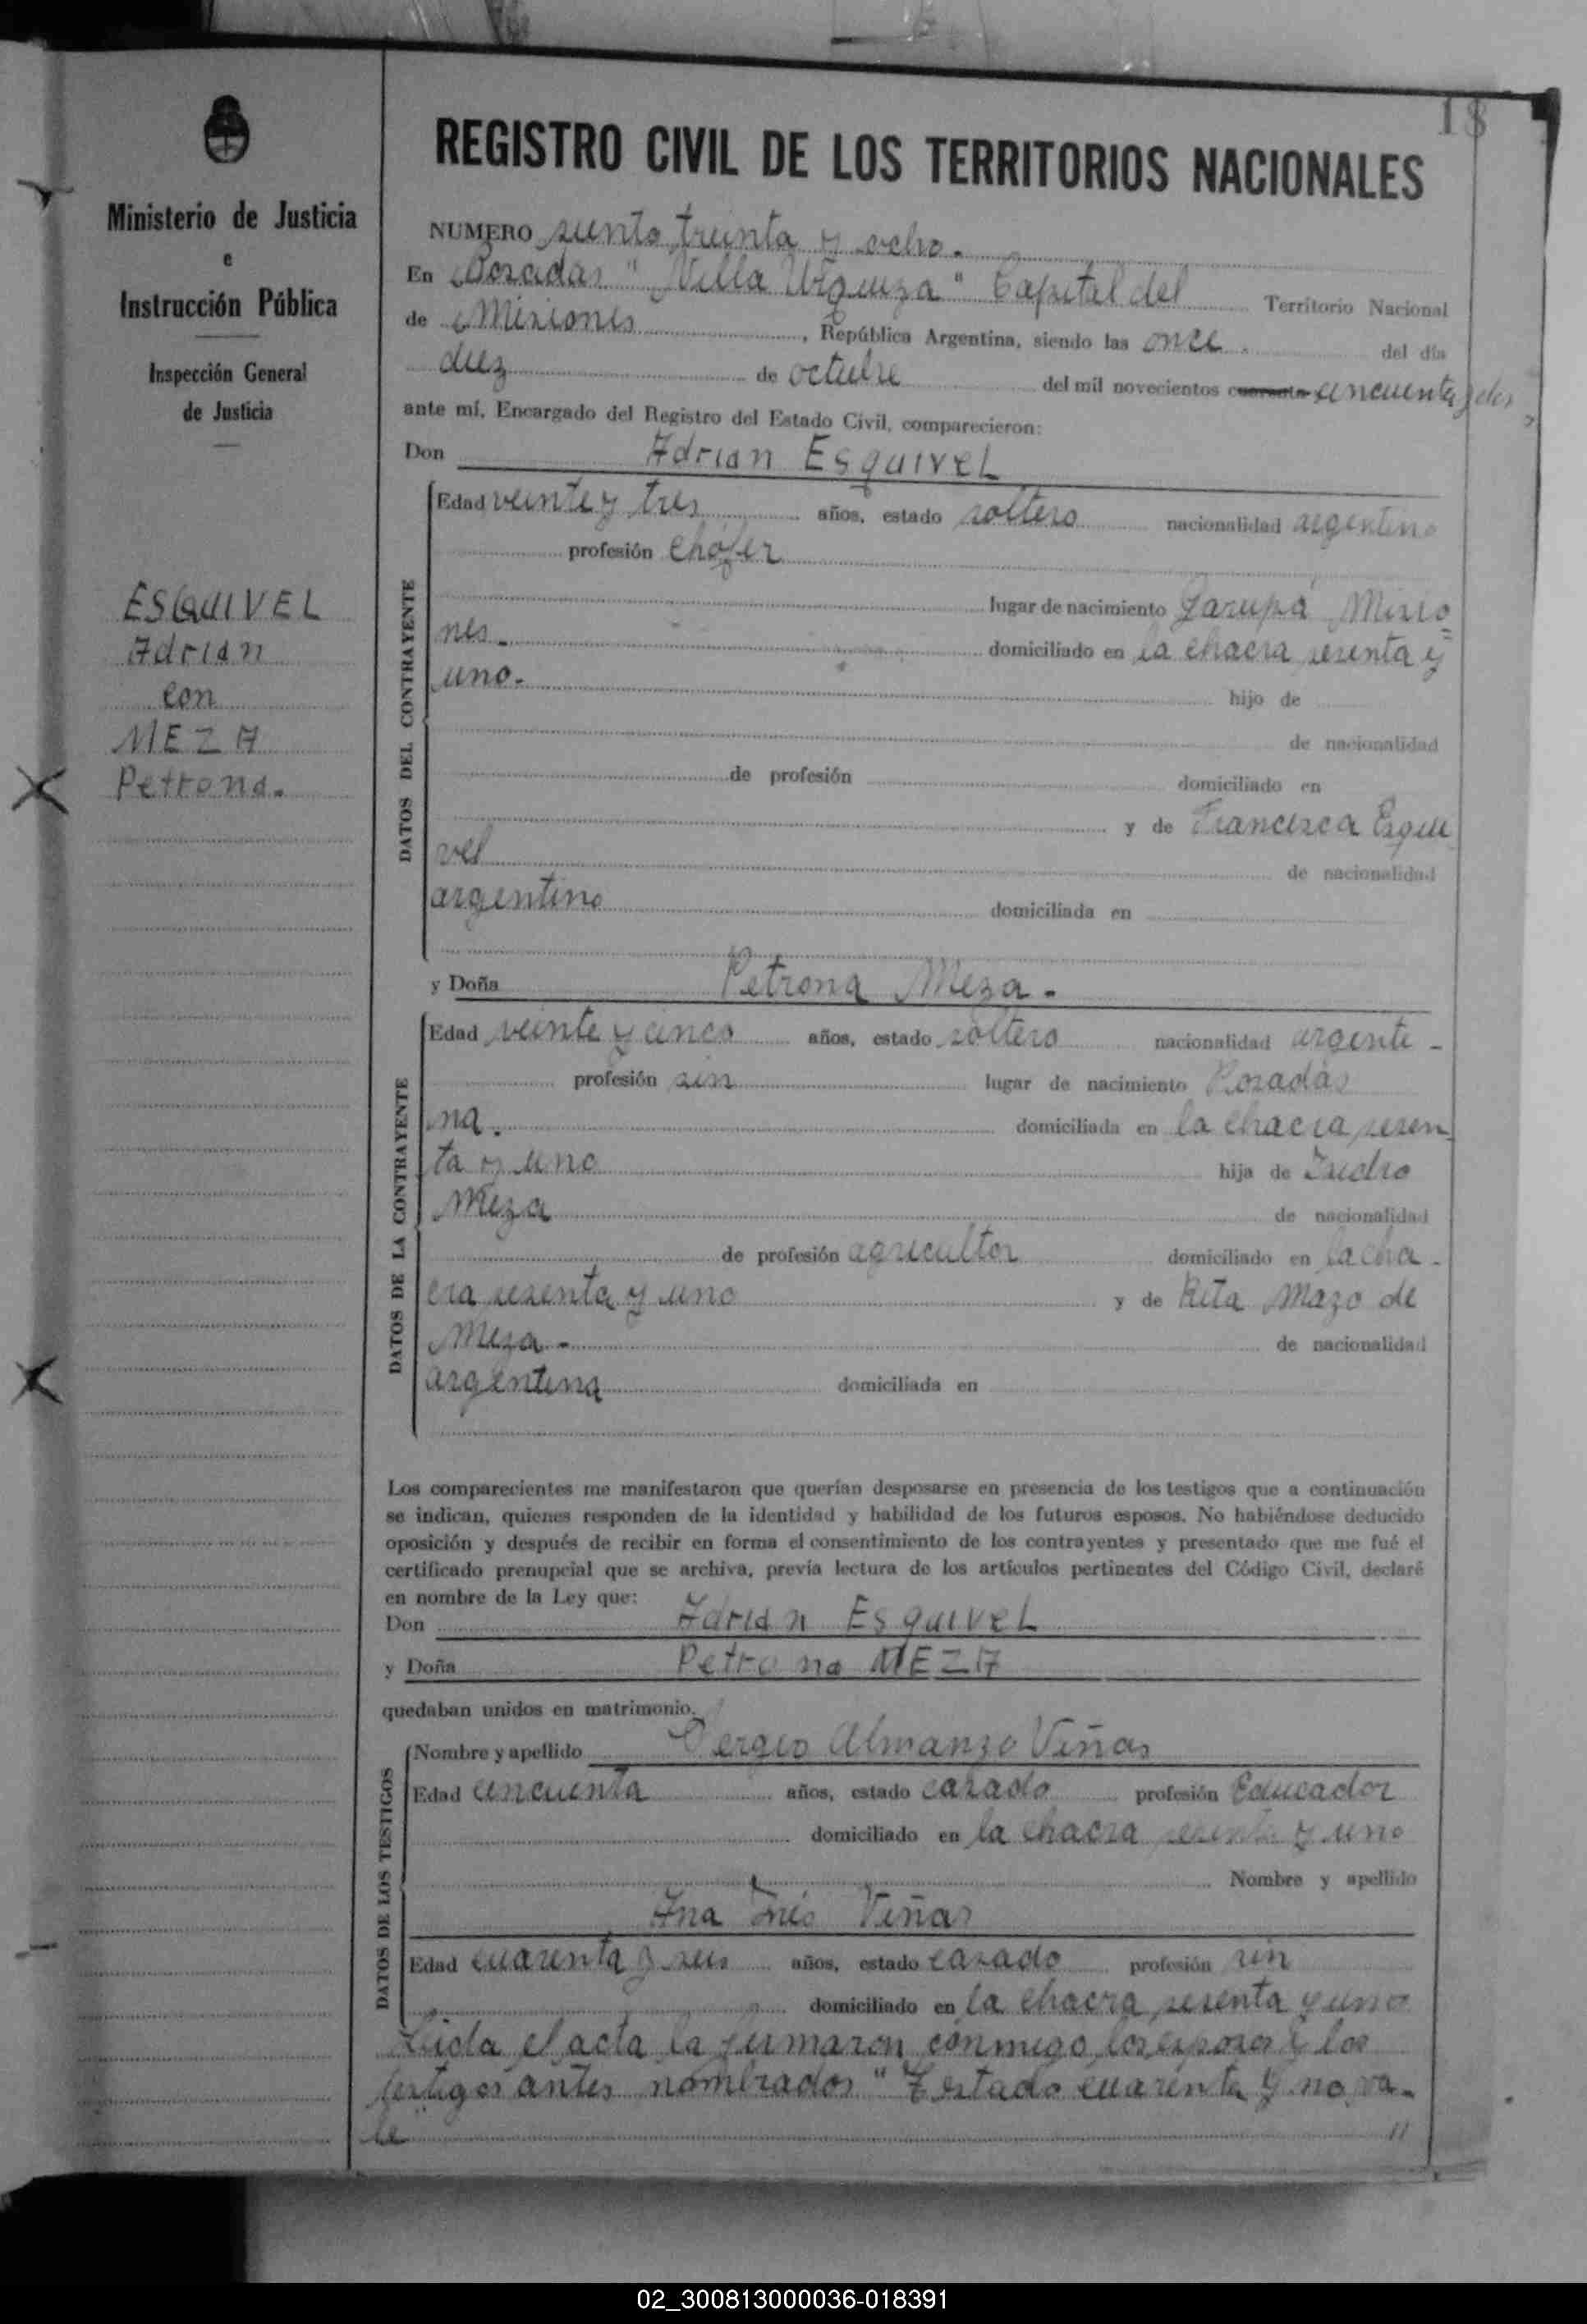 18
Ministerio de Justicia
e
Instrucción Pública
Inspección General
de Justicia
ESQUIVEL
Adrian
con
MEZA
Petrona.
REGISTRO CIVIL DE LOS TERRITORIOS NACIONALES
NUMERO siento treinta y ocho.
En Posadas "Villa Urquiza" Capital del Territorio Nacional
de Misiones, República Argentina, siendo las once. del día
diez de octubre del mil novecientos cuarenta cincuenta y dos
ante mí, Encargado del Registro del Estado Civil, comparecieron:
Don Adrian EsquiveL
DATOS DEL CONTRAYENTE
Edad veinte y tres años, estado soltero nacionalidad argentino
profesión chófer
lugar de nacimiento Garupá Misio
nes. domiciliado en la chacra sesenta y
uno. hijo de
de nacionalidad
de profesión domiciliado en
y de Francisca Esqui
vel de nacionalidad
argentino domiciliada en
y Doña Petrona Meza.
DATOS DE LA CONTRAYENTE
Edad veinte y cinco años, estado soltero nacionalidad argenti-
profesión sin lugar de nacimiento Posadas
na. domiciliada en la chacra sesen
ta y uno hija de Isidro
Meza de nacionalidad
de profesión agricultor domiciliado en la cha-
cra sesenta y uno y de Rita Mazo de
Meza- de nacionalidad
argentina domiciliada en
Los comparecientes me manifestaron que querían desposarse en presencia de los testigos que a continuación
se indican, quienes responden de la identidad y habilidad de los futuros esposos. No habiéndose deducido
oposición y después de recibir en forma el consentimiento de los contrayentes y presentado que me fué el
certificado prenupcial que se archiva, previa lectura de los artículos pertinentes del Código Civil, declaré
en nombre de la Ley que:
Don Adrian EsquiveL
y Doña Petrona MEZA
quedaban unidos en matrimonio.
DATOS DE LOS TESTIGOS
Nombre y apellido Sergio Almanzo Viñas
Edad cincuenta años, estado casado profesión Educador
domiciliado en la chacra sesenta y uno
Nombre y apellido
Ana Inés Viñas
Edad cuarenta y seis años, estado casado profesión sin
domiciliado en la chacra sesenta y uno
Leida el acta la firmaron conmigo los esposos y los
testigos antes nombrados "Testado cuarenta y no va-
le "
02_300813000036-018391